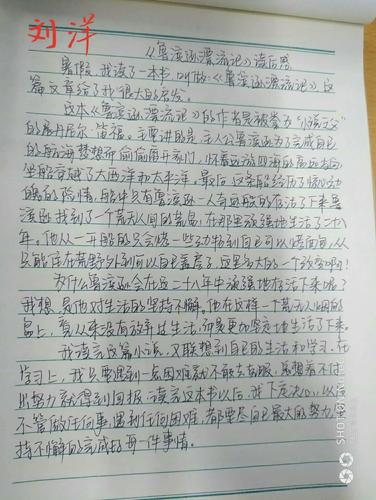 刘洋
《鲁滨逊漂流记》读后感
暑假,我读了一本书,叫做《鲁滨逊漂流记》这
篇文章给了我很大的启发。
这本《鲁滨逊漂流记》的作者是被誉为“小说之父”
的丹尼尔·笛福。主要讲的是,主人公鲁滨逊为了完成自己
的航海梦想而偷偷离开家门,怀着远游四海的高远志向
坐船穿越了大西洋和太平洋。最后,这条船经历了惊心动
魄的险情,船中只有鲁滨逊一人奇迹般的存活了下来鲁
滨逊找到了个荒无人间的荒岛,在那里顽强地生活了二十八
年。他从一开始的只会烧一些动物到自己可以烤面包,从
只能住在荒野外到可以自己盖房子,这是多大的一个改变啊!
为什么鲁滨逊会在这二十八年中顽强地存活下来呢?
我想,是他对生活的坚持不懈。他在这样一个荒无人烟的
岛上,看从来没有放弃过生活,而是更加坚定地生活了下来。
我读完这篇小说,又联想到自己的生活和学习。在
学习上,我只要遇到一点困难就不敢去克服,总想着不付
出努力就得到回报。读完这本书以后,我下定决心,以后
不管做任何事,遇到任何困难,都要尽自己最大的努力,坚
持不懈的完成好每一件事情。